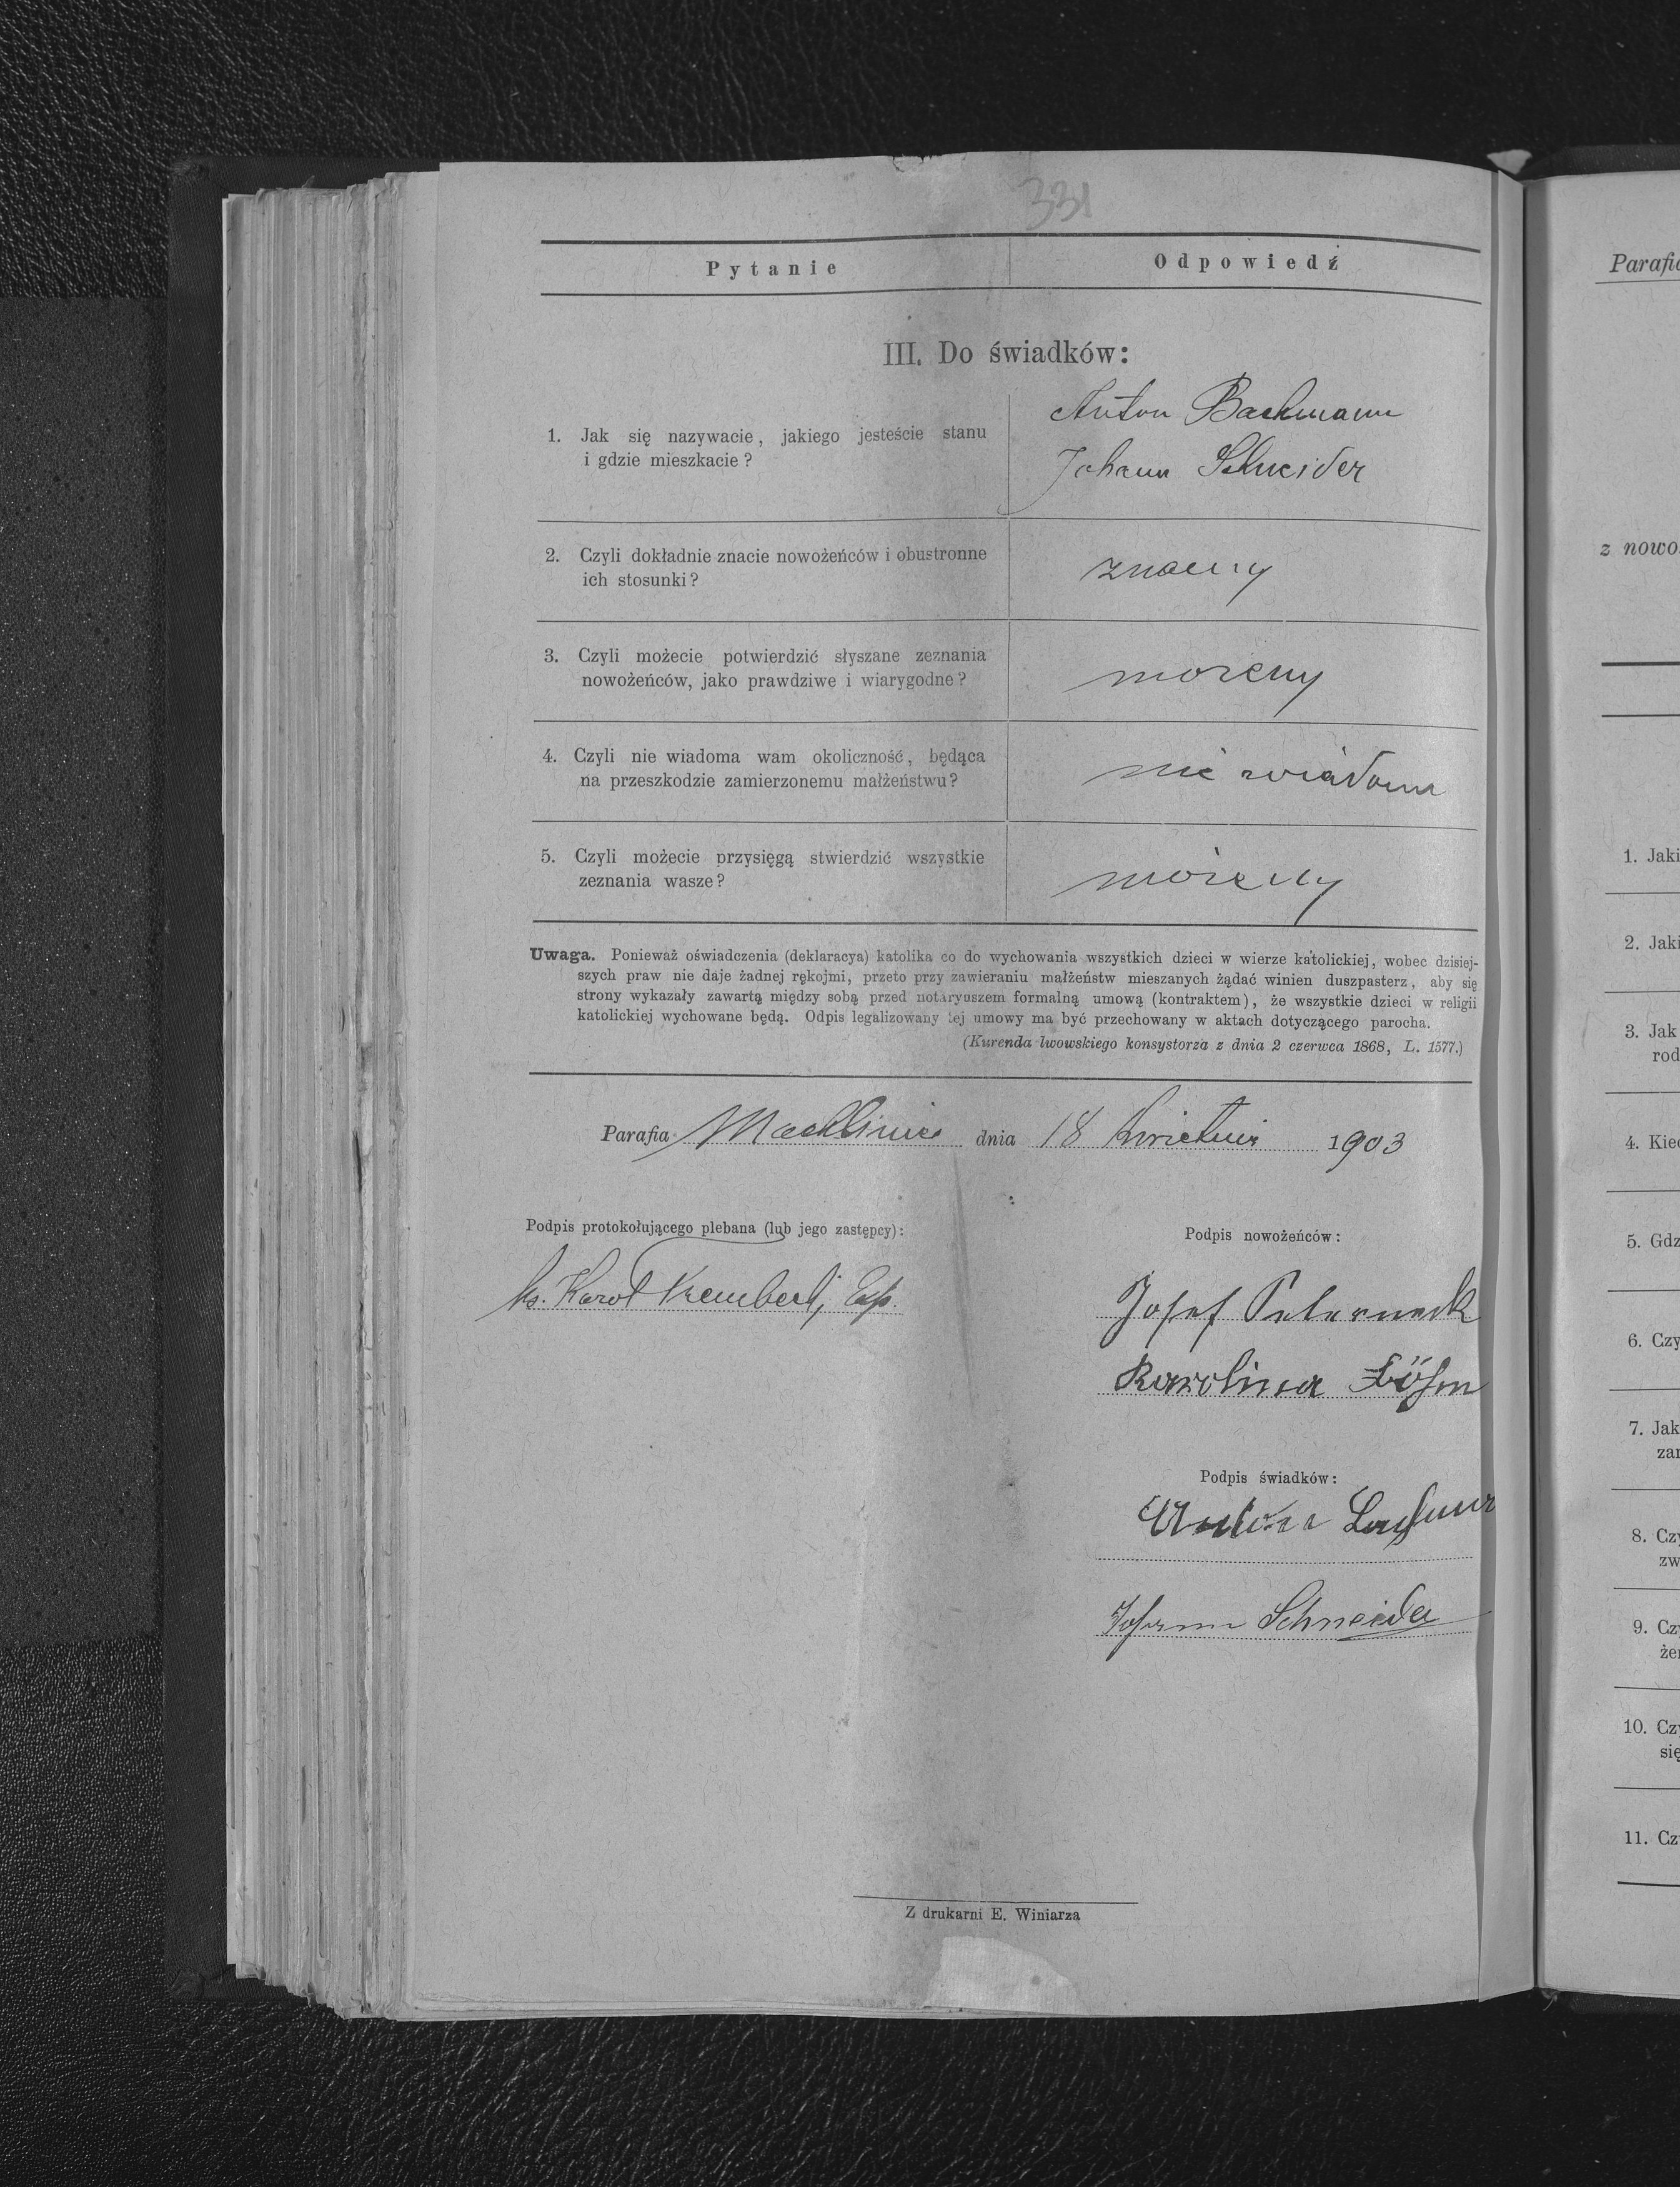 331
Pytanie
Odpowiedź
III. Do świadków:
1. Jak się nazywacie, jakiego jesteście stanu
i gdzie mieszkacie?
Anton Bachmann
Johann Schneider
2. Czyli dokładnie znacie nowożeńców i obustronne
ich stosunki?
znamy
3. Czyli możecie potwierdzić słyszane zeznania
nowożeńców, jako prawdziwe i wiarygodne?
możemy
4. Czyli nie wiadoma wam okoliczność, będąca
na przeszkodzie zamierzonemu małżeństwu?
nie wiadoma
5. Czyli możecie przysięgą stwierdzić wszystkie
zeznania wasze?
możemy
Uwaga. Ponieważ oświadczenia (deklaracya) katolika co do wychowania wszystkich dzieci w wierze katolickiej, wobec dzisiej-
szych praw nie daje żadnej rękojmi, przeto przy zawieraniu małżeństw mieszanych żądać winien duszpasterz, aby się
strony wykazały zawartą między sobą przed notaryuszem formalną umową (kontraktem), że wszystkie dzieci w religii
katolickiej wychowane będą. Odpis legalizowany tej umowy ma być przechowany w aktach dotyczącego parocha.
(Kurenda lwowskiego konsystorza z dnia 2 czerwca 1868, L. 1577.)
Parafia Machliniec dnia 18 kwietnia 1903
Podpis protokołującego plebana (lub jego zastępcy):
Ks. Karol
Podpis nowożeńców:
Josef
Karolina Böhm
Podpis świadków:
Anton
Johann Schneider
Z drukarni E. Winiarza
Parafia
z nowo
1. Jaki
2. Jaki
3. Jak
rod
4. Kied
5. Gdz
6. Czy
7. Jak
zam
8. Czy
zw
9. Czy
żeń
10. Czy
się
11. Cz